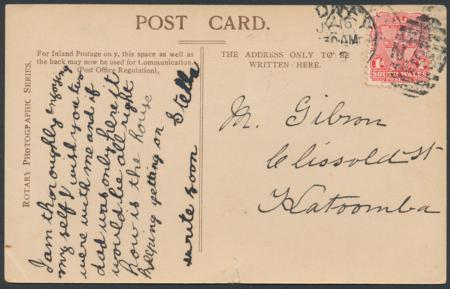 POST CARD.
For Inland Postage only, this space as well as the
back may now be used for Communication.
(Post Office Regulation).
THE ADDRESS ONLY TO BE
WRITTEN HERE.
ROTARY PHOTOGRAPHIC SERIES.
I am thoroughly enjoying
myself I wish you too
were with me and if
dad was only here it
would be all right
how is the house
keeping getting on
write soon Stella
M. Gibson
Clissold St
Katoomba
SOUTH WALES